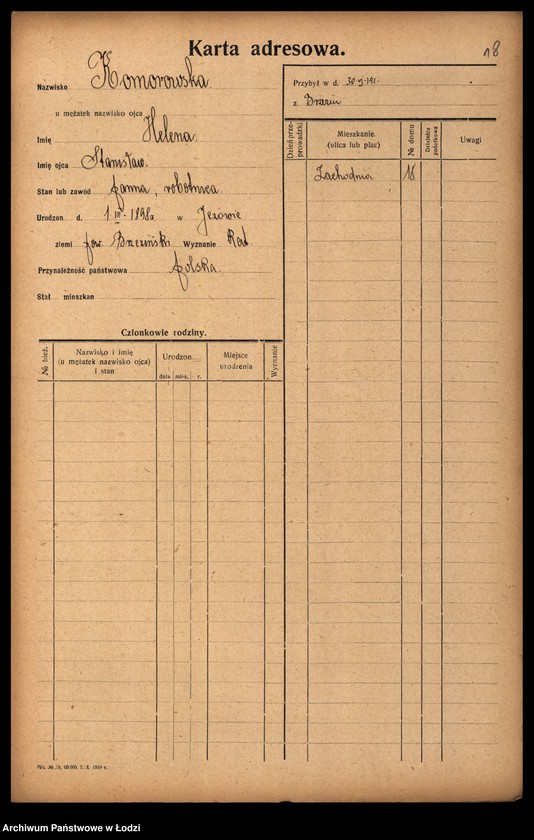 Karta adresowa.
18
Nazwisko Komorowska
u mężatek nazwisko ojca
Imię Helena
Imię ojca Stanisław.
Stan lub zawód panna, robotnica
Urodzon d. 1 III - 1898 w Jeżowie
ziemi pow. Brzeziński Wyznanie
Przynależność państwowa polska
Stał. mieszkan
Przybył w d.
z Brzezin
Dzień prze-prowadzki
Mieszkanie.
(ulica lub plac)
№ domu
Dzielnica podatkowa
Uwagi
Zachodnia
Członkowie rodziny.
№ bież.
Nazwisko i imię
(u mężatek nazwisko ojca)
i stan
Urodzon
dnia mies. r.
Miejsce
urodzenia
Wyznanie
7. X. 1919 r.
Archiwum Państwowe w Łodzi